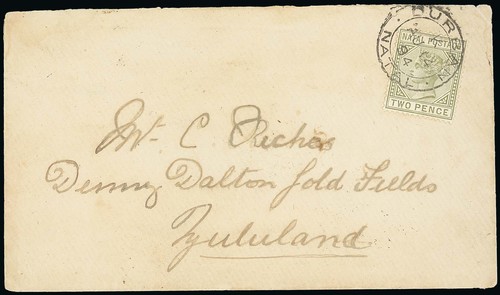 DURBAN
NATAL
NATAL POSTAGE
TWO PENCE
Mr C Riches
Denny Dalton Gold Fields
Zululand